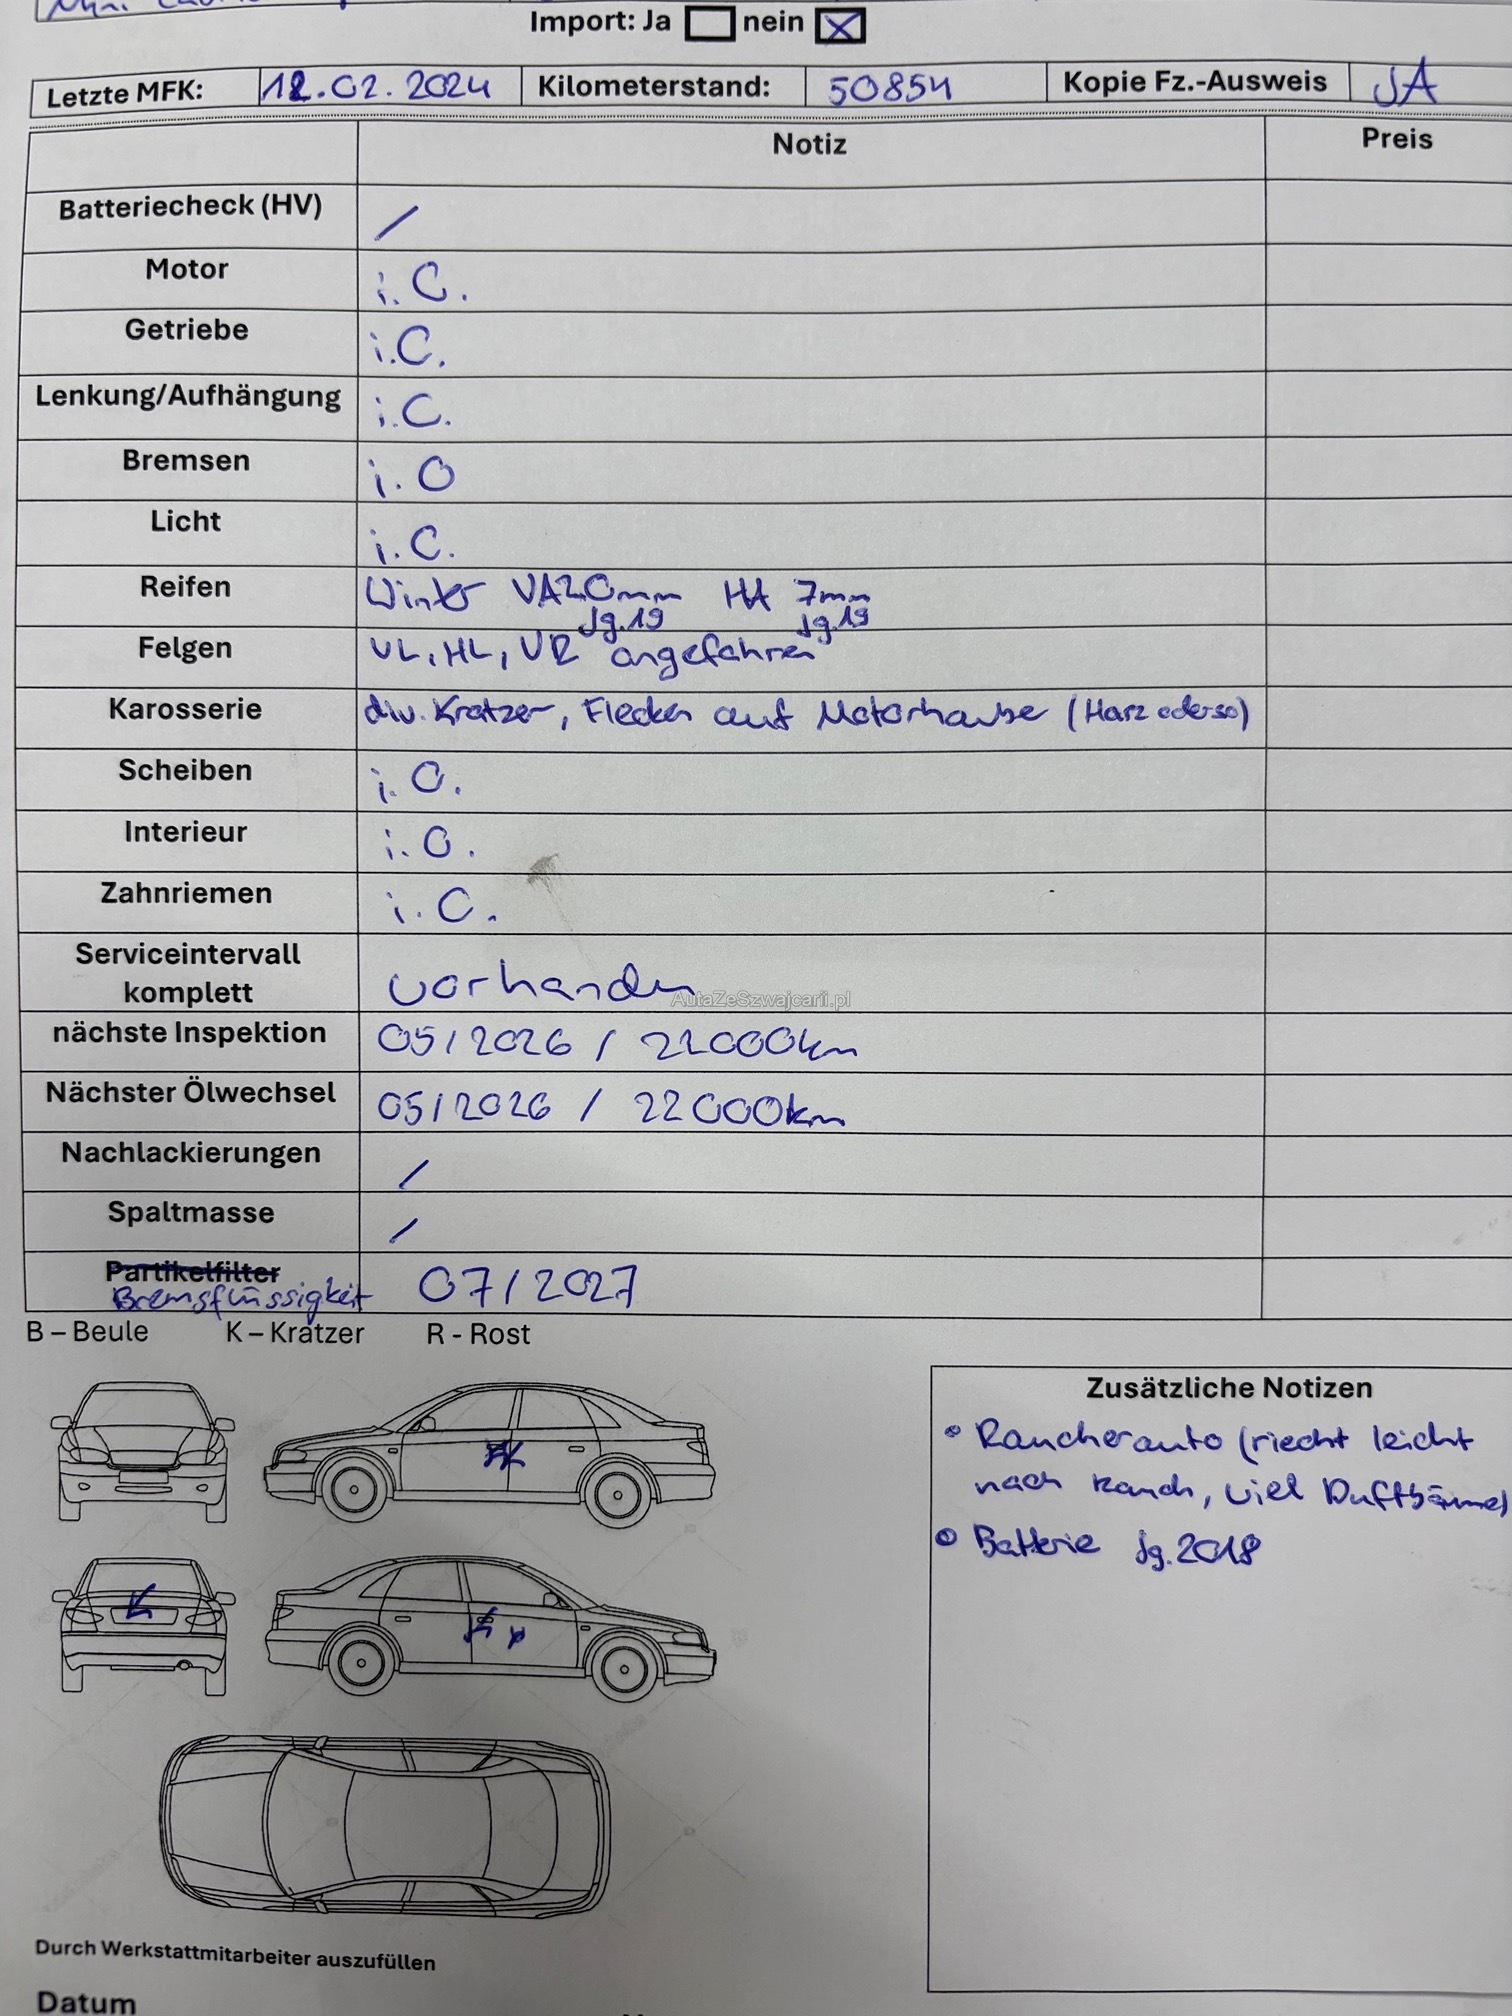 Import: Ja nein X
Letzte MFK: 12.02.2024 Kilometerstand: 50854 Kopie Fz.-Ausweis JA
Notiz Preis
Batteriecheck (HV) /
Motor i.O.
Getriebe i.O.
Lenkung/Aufhängung i.O.
Bremsen i.O
Licht i.O.
Reifen Winter HA 7mm
Jg.19 Jg.19
Felgen VL, HL, VR angefahren
Karosserie div. Kratzer, Flecken auf Motorhaube (Harz oder so)
Scheiben i.O.
Interieur i.O.
Zahnriemen i.O.
Serviceintervall
komplett vorhanden
AutaZeSzwajcarii.pl
nächste Inspektion 05/2026 / 22000km
Nächster Ölwechsel 05/2026 / 22000km
Nachlackierungen /
Spaltmasse /
Partikelfilter
Bremsflüssigkeit 07/2027
B – Beule K – Kratzer R - Rost
K
K
K
Zusätzliche Notizen
• Raucherauto (riecht leicht
nach Rauch, viel Duftbäume)
• Batterie Jg.2018
Durch Werkstattmitarbeiter auszufüllen
Datum